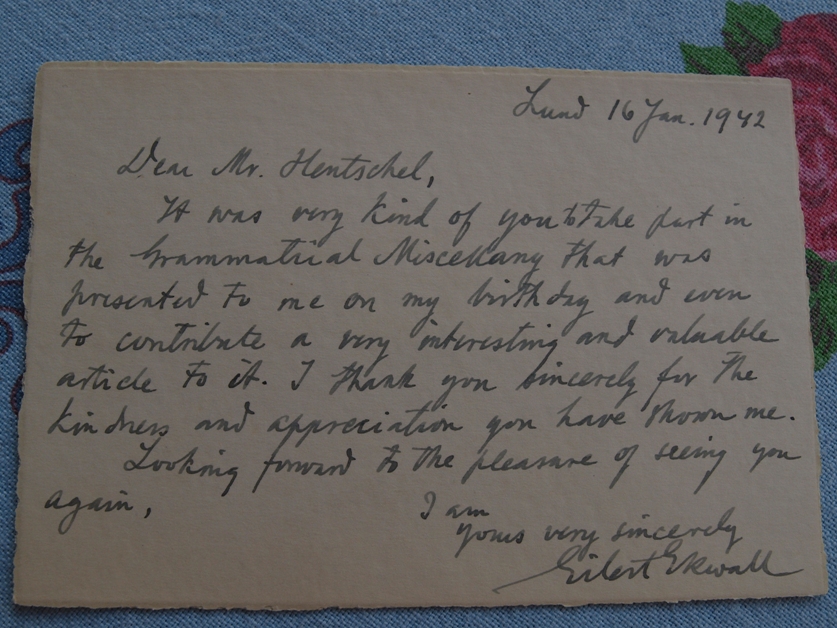 Lund 16 Jan. 1942
Dear Mr. Hentschel,
It was very kind of you to take part in
the Grammatical Miscellany that was
presented to me on my birthday and even
to contribute a very interesting and valuable
article to it. I thank you sincerely for the
kindness and appreciation you have shown me.
Looking forward to the pleasure of seeing you
again,
I am
yours very sincerely
Eilert Ekwall